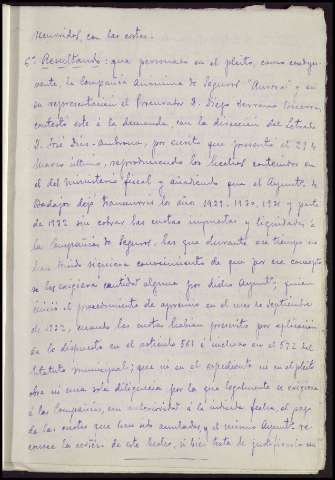 recurridos, con las costas.
6º Resultando: que personado en el pleito, como coadyu-
vante, la Compañía Anónima de Seguros "Aurora" y en
su representación el Procurador D. Diego Serrano
contestó este á la demanda, con la dirección del Letrado
D. José Díaz-Ambrona, por escrito que presentó el 29 de
Marzo último, reproduciendo los hechos contenidos en
el del Ministerio fiscal y añadiendo que el Ayuntº de
Badajoz dejó transcurrir los años 1929, 1930, 1931 y parte
de 1932 sin cobrar las cuotas impuestas y liquidadas á
la Compañía de Seguros, las que durante ese tiempo no
han tenido siquiera conocimiento de que por ese concepto
se les exigiera cantidad alguna por dicho Ayuntº; quien
inició el procedimiento de apremio en el mes de Septiembre
de 1932, cuando las cuotas habían prescrito por aplicación
de lo dispuesto en el artículo 561 é incluso en el 572 del
Estatuto municipal; que ni en el expediente ni en el pleito
obra ni una sola diligencia por la que legalmente se exigiera
á las Compañías, con anterioridad á la indicada fecha, el pago
de las cuotas que han sido anuladas, y el mismo Ayuntº re-
conoce la certeza de este hecho, si bien trata de justificarlo con